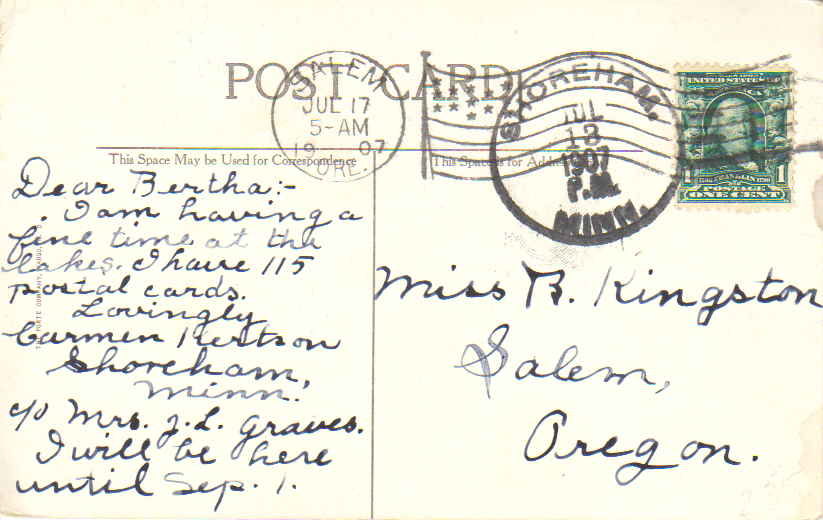 POST CARD
SALEM
JUL 17
5-AM
19 07
ORE.
SHOREHAM,
JUL
13
1907
P.M.
MINN.
UNITED STATES
FRANKLIN
1
POSTAGE
ONE CENT
This Space May be Used for Correspondence
This Space is for Address
Dear Bertha:-
I am having a
fine time at the
lakes. I have 115
postal cards.
Lovingly
Carmen
Shoreham,
Minn.
c/o Mrs. J. L. Graves.
I will be here
until Sep. 1.
Miss B. Kingston
Salem,
Oregon.